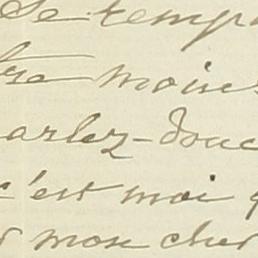 se temps
tre moins
arlez-donc
c'est moi q
r mon cher